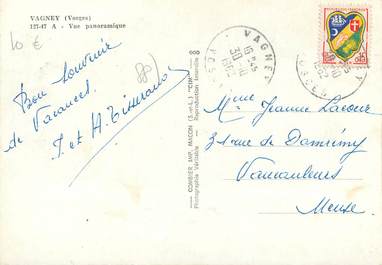 VAGNEY (Vosges)
127-47 A - Vue panoramique
10 €
88
Bon Souvenir
de Vacances.
J. et H. Tisserand
COMBIER IMP. MACON (S.-et-L.) "CIM"
Photographie Véritable - Reproduction Interdite
VAGNEY
VOSGES
16 H 45
30
Mme Jeanne Lacour
31 rue de Domrémy
Vaucouleurs
Meuse